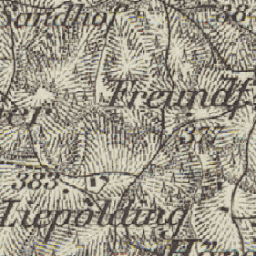 Sandhof
38
Freundf
377
383
Liepolding